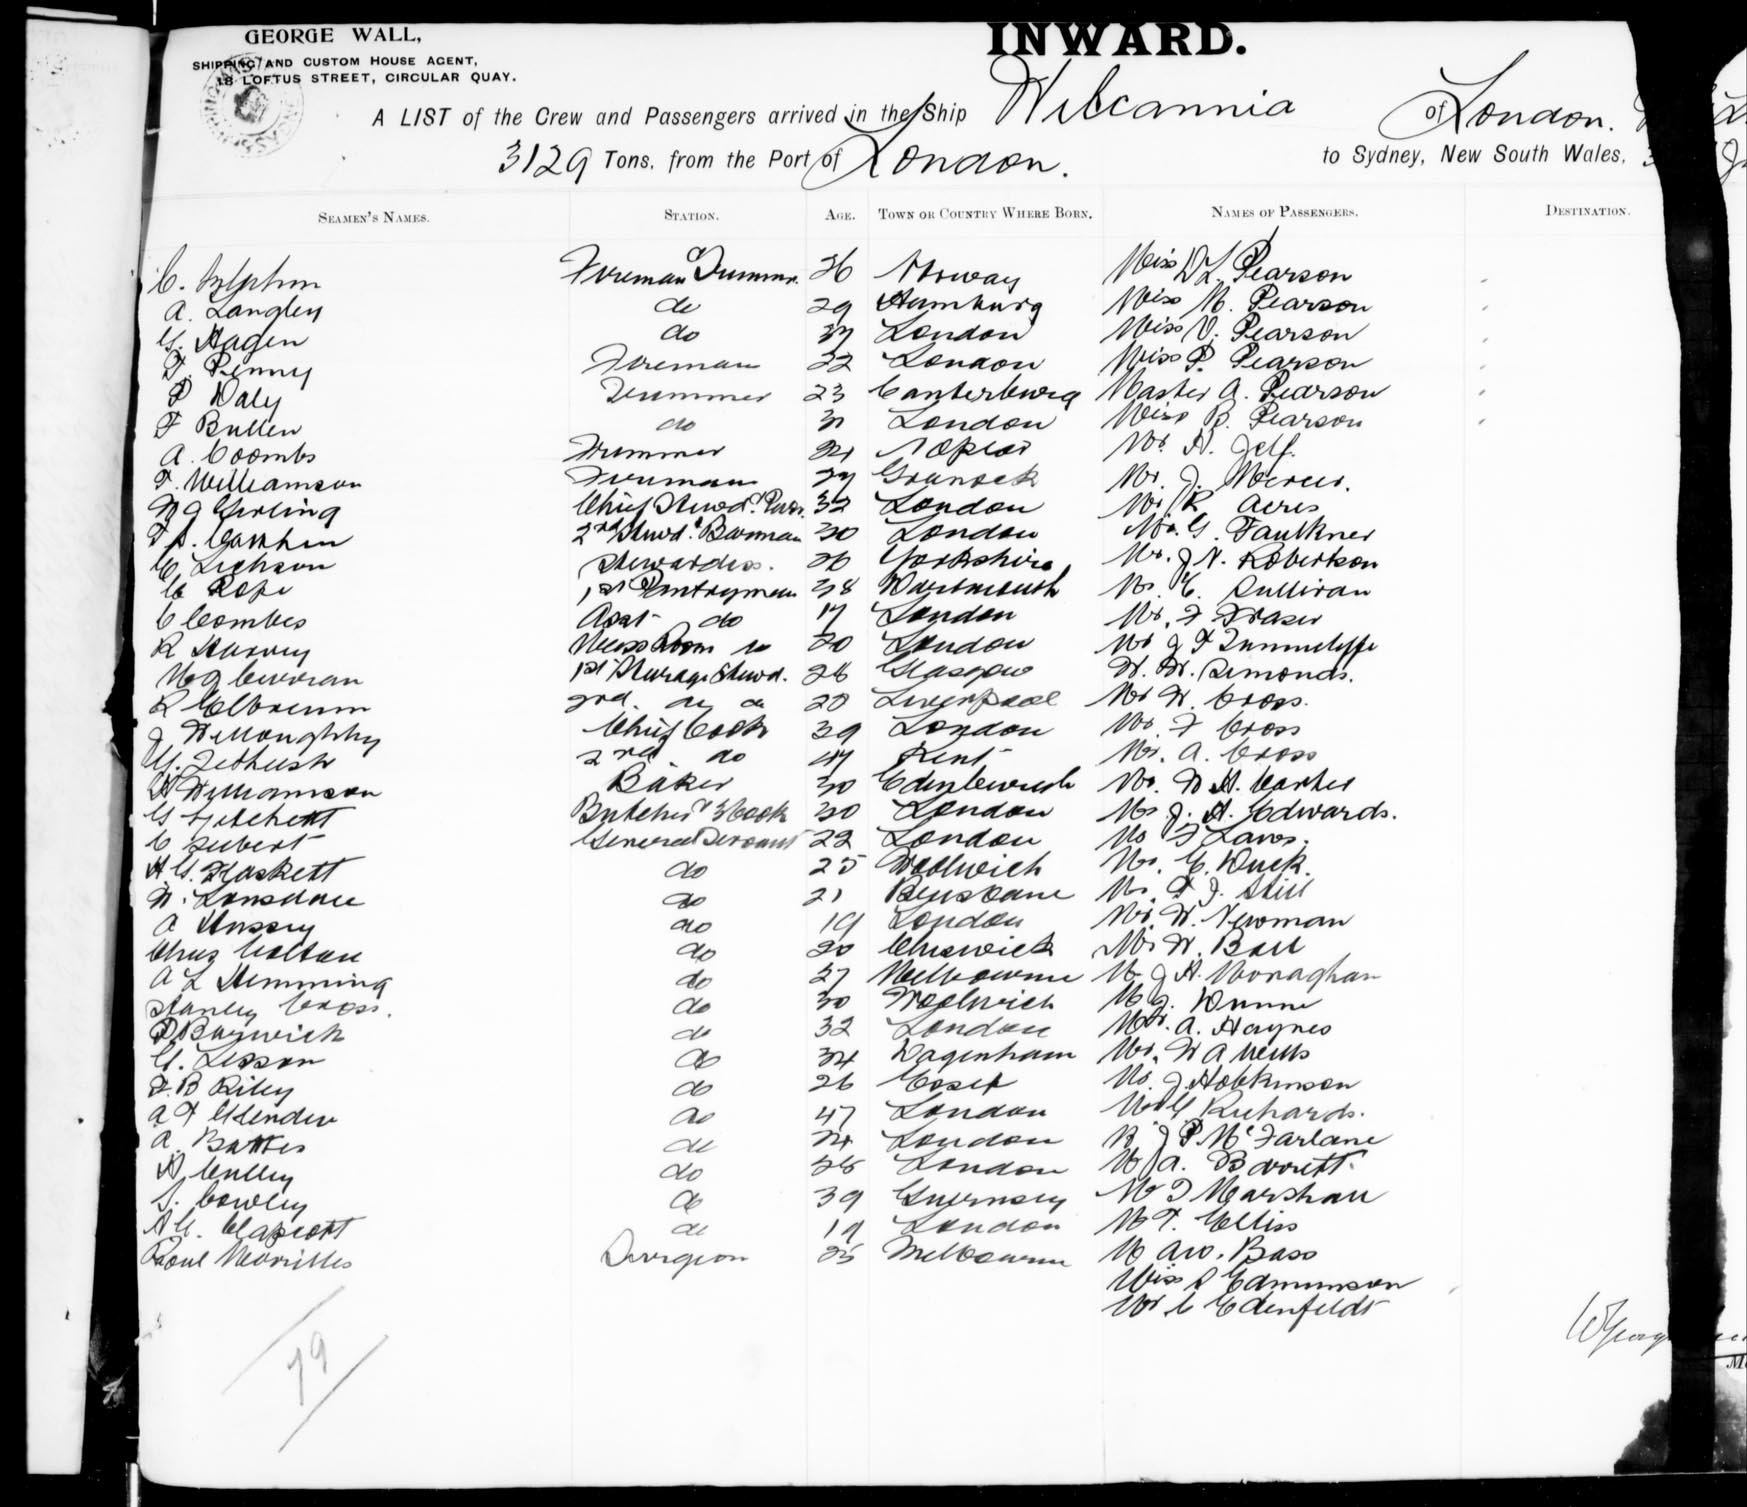 GEORGE WALL,
SHIPPING AND CUSTOM HOUSE AGENT,
18 LOFTUS STREET, CIRCULAR QUAY.
INWARD.
A LIST of the Crew and Passengers arrived in the Ship Wilcannia of London.
3129 Tons, from the Port of London. to Sydney, New South Wales,
SEAMEN'S NAMES. STATION. AGE. TOWN OR COUNTRY WHERE BORN. NAMES OF PASSENGERS. DESTINATION.
C. Fireman & Trimmer 26 Norway Miss Pearson
A. Langley do 29 Hamburg Miss M. Pearson
G. Hagen do London Miss V. Pearson
F. Penny Fireman 22 London Miss P. Pearson
P Daly Trimmer 23 Canterbury Master A. Pearson
F Bullen do London Miss B. Pearson
A. Coombs Trimmer 24 Mr. H. Jelf.
F. Williamson Fireman Mr. J. Mercer.
Girling Chief Stewd. & 32 London Mr R Acres
2nd Stewd. & Barman 30 London Mr. G. Faulkner
Stewardess. 26 Yorkshire Mr. J N. Robertson
C Pope 1st Pantryman 38 Mr. C. Sullivan
C Combes Asst do 17 London Mr. F Fraser
R Harvey Mess Room do 20 London Mr J F
1st Steerage Stewd. 28 Glasgow W. W. Simonds.
2nd. do do Liverpool Mr W. Cross.
J Willoughby Chief Cook 39 London Mr. F Cross
2nd do Kent Mr. A. Cross
H Williamson Baker 30 Mr. W H. Carter
G Butcher & 3 Cook 30 London Mr J. H. Edwards.
C General Servant 22 London Mr F Laws.
H G. Haskett do 25 Woolwich Mr. C. Duck.
W. Lonsdale do 21 Brisbane Mr. F J. Still
A Hussey do 19 London Mr. W. Newman
Chas Colton do 20 Chiswick Mr W. Ball
A L Hemming do 27 Melbourne Mr J H. Monaghan
Stanley Cross. do 30 Woolwich Mr J. Dunne
P Barwick do 32 London Mr. A. Haynes
G. Lesson do 34 Dagenham Mr. W A Wells
F. B Riley do 26 Essex Mr. J. Hobkinson
A F do 47 London Mr G Richards.
A. Battes do 24 London J P McFarlane
H Culley do London Mr A. Barrett.
S. Cowley do 39 Guernsey Mr T Marshall
A G. do 19 London Mr F. Elliss
Surgeon 25 Melbourne Mr Aw. Bass
Miss Edmunson
Mr C Edenfeldt
79